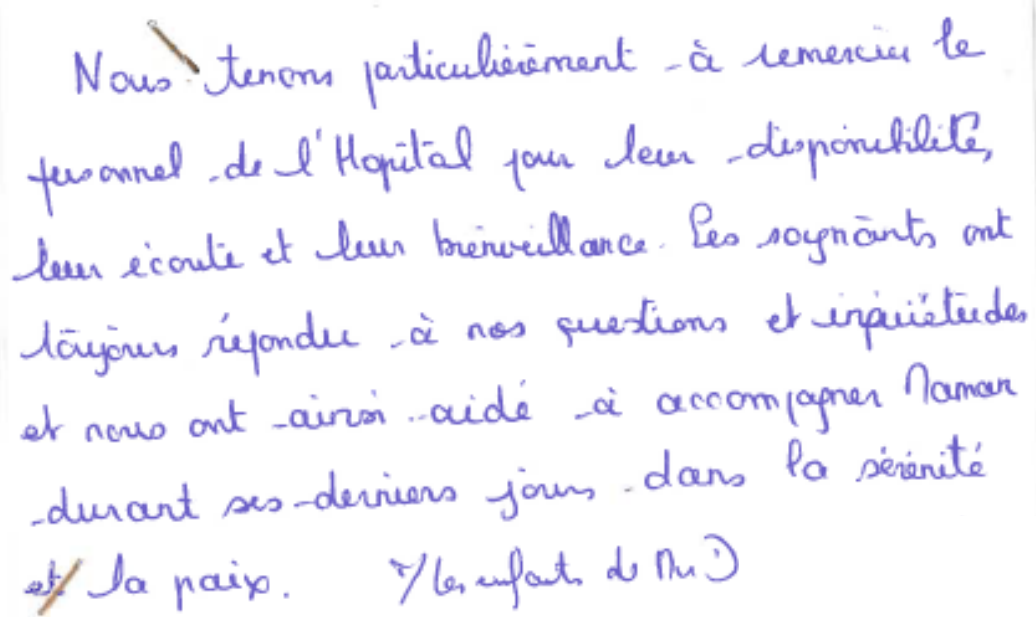 Nous tenons particulièrement à remercier le
personnel de l'Hopital pour leur disponibilité,
leur écoute et leur bienveillance. Les soignants ont
toujours répondu à nos questions et inquiétudes
et nous ont ainsi aidé à accompagner Maman
durant ses derniers jours dans la sérénité
et la paix. Les enfants de Mr D